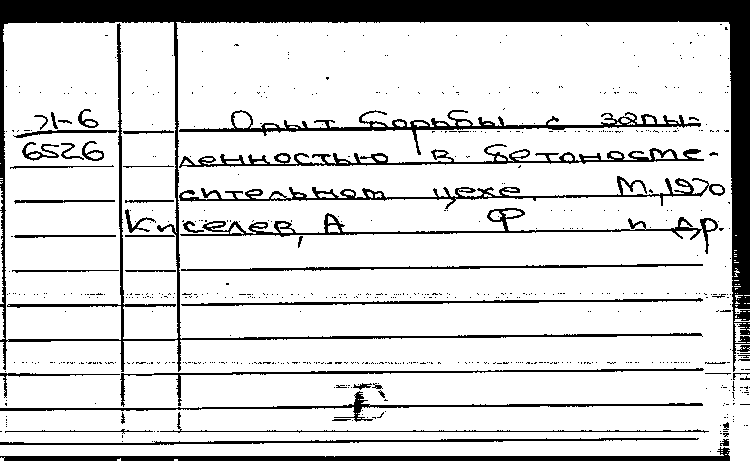 71-6
6526
Опыт борьбы с запы-
ленностью в бетоносме-
сительном цехе. М., 1970
Киселев, А Ф и др.